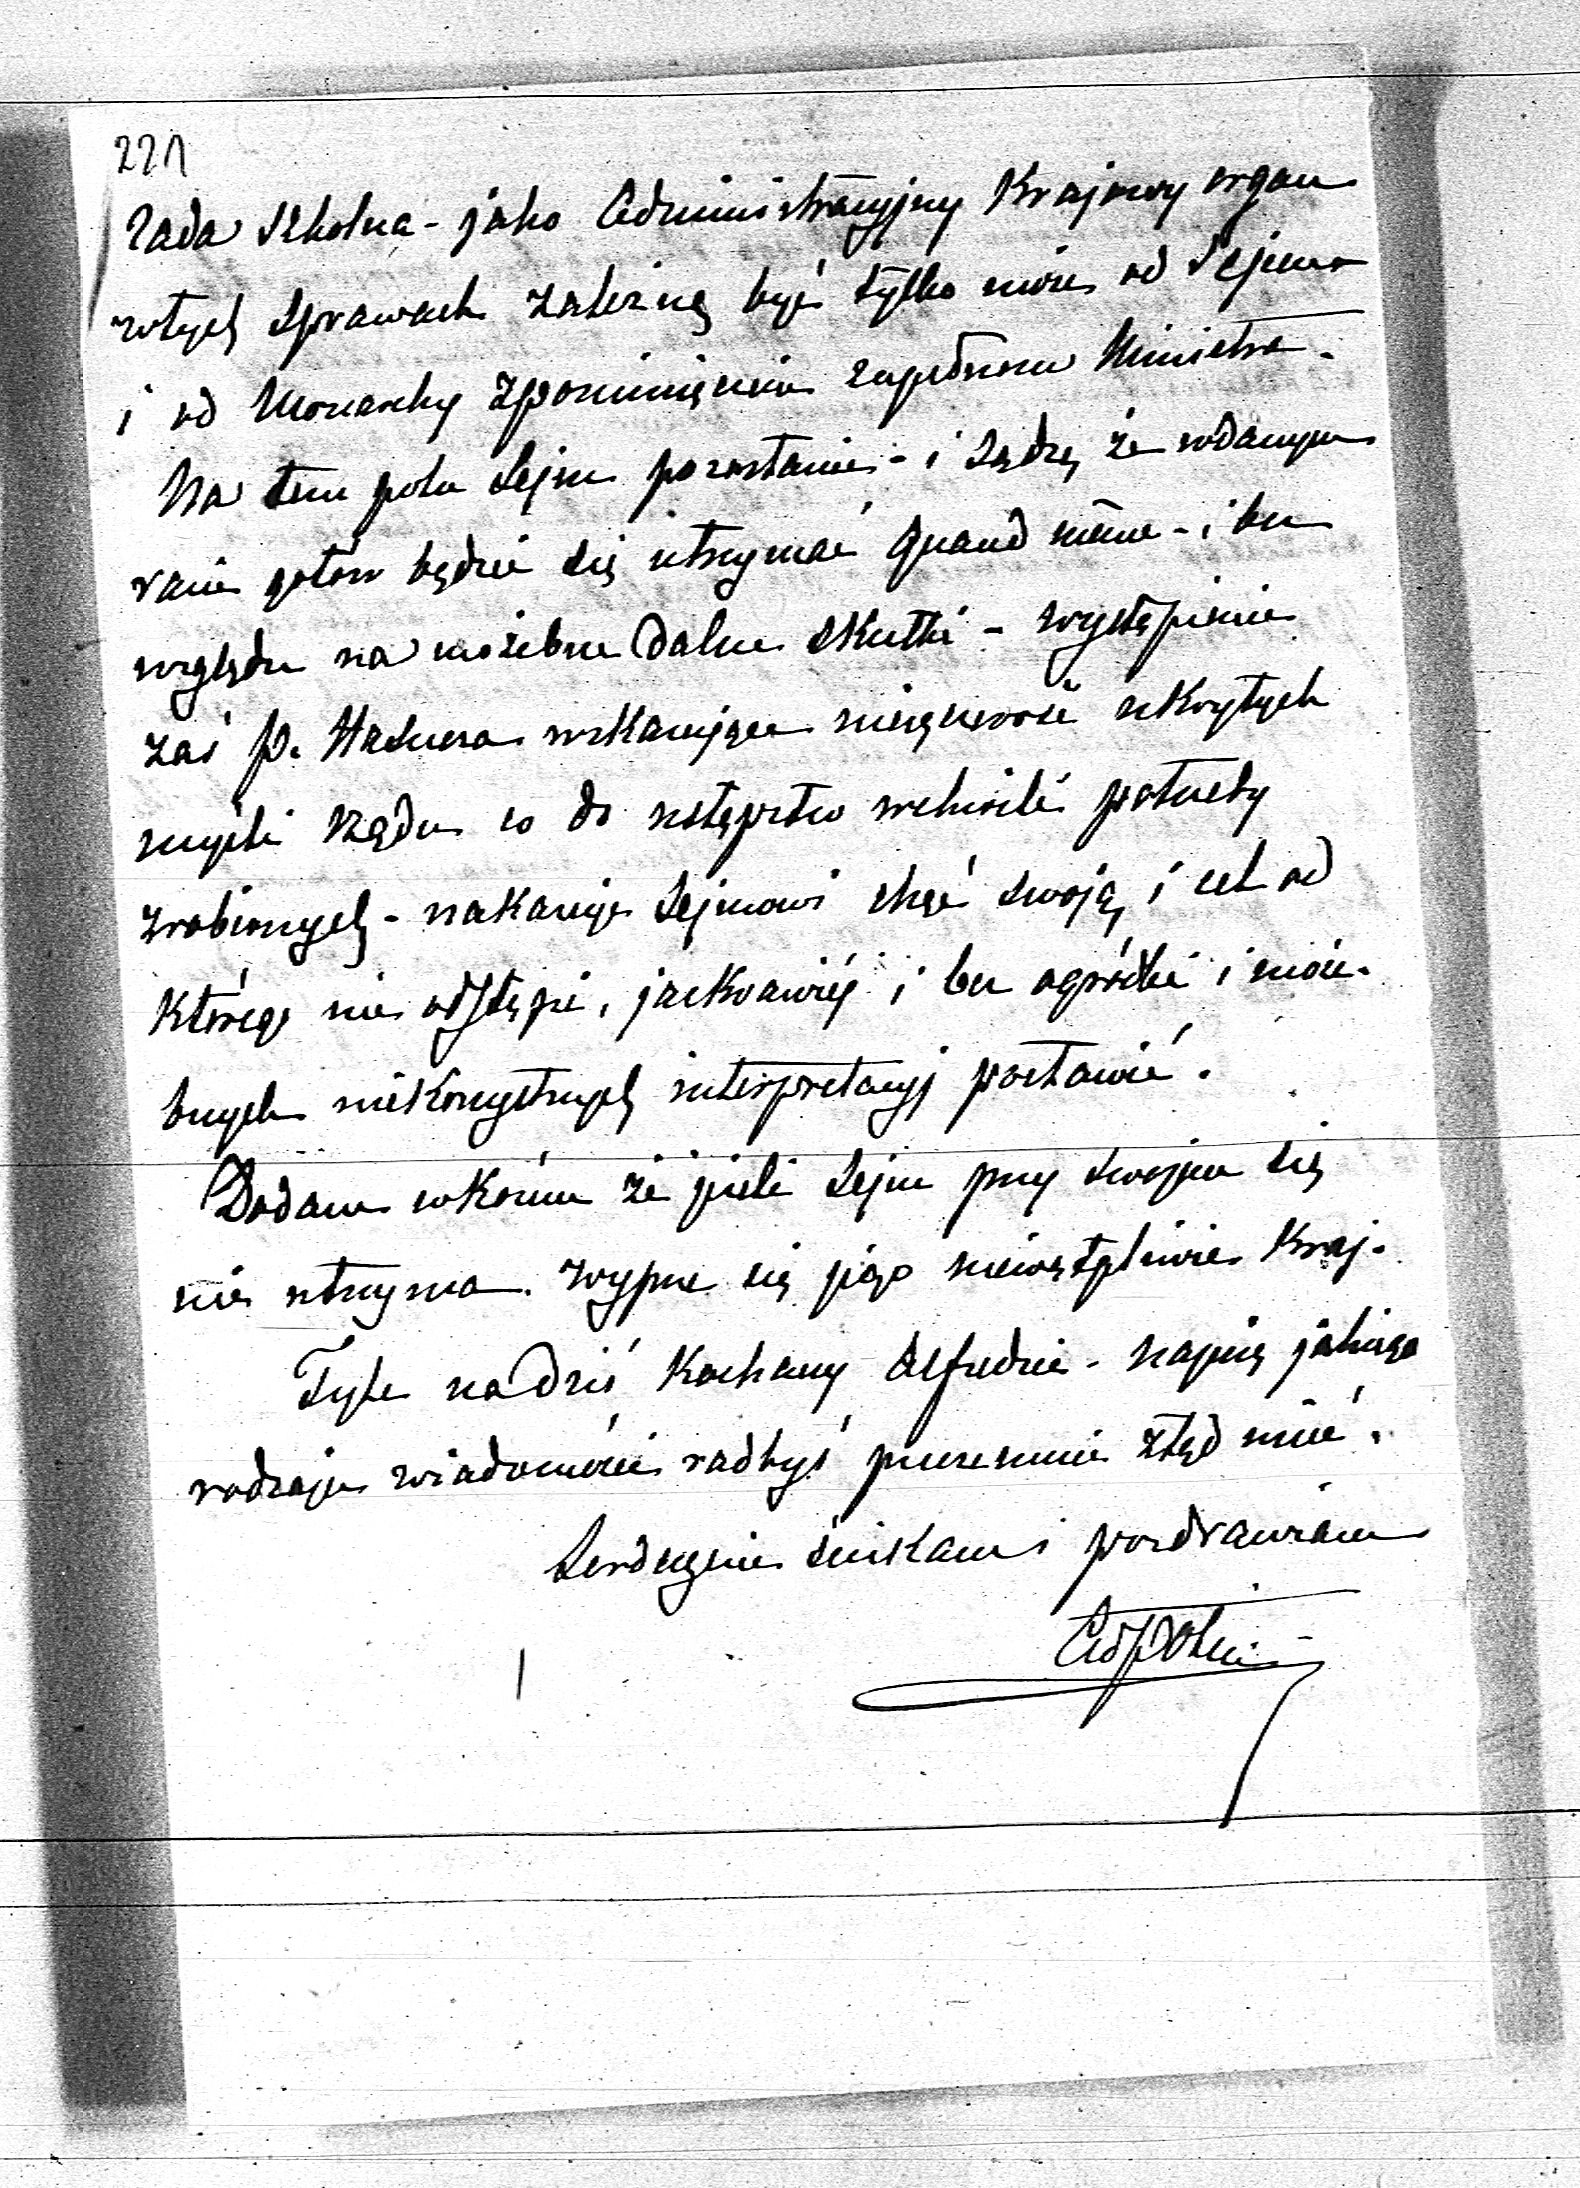 221
Rada Szkolna - jako Administracyjny Krajowy organ
w tych sprawach zależną być tylko może od Sejmu
i od Monarchy z pominięciem zupełnem Ministra.
Na tem polu Sejm pozostanie - i sądzę że w danym
razie gotów będzie się utrzymać quand même - i bez
względu na możebne dalsze skutki - wystąpienie
zaś p. Hasnera wskazujące nieszczerość ukrytych
myśli rządu co do ustępstw w chwili potrzeby
zrobionych - nakazuje Sejmowi chęć swoją i cel od
którego nie odstąpi, jaskrawiéj i bez ogródki i możе-
bnych niekorzystnych interpretacyj postawić.
Dodam w końcu że jeśli Sejm przy swojem się
nie utrzyma. wyprze się jego niewątpliwie Kraj.
Tyle na dziś Kochany Alfredzie - napisz jakiego
rodzaju wiadomości radbyś przezemnie ztąd mieć.
Serdecznie ściskam i pozdrawiam